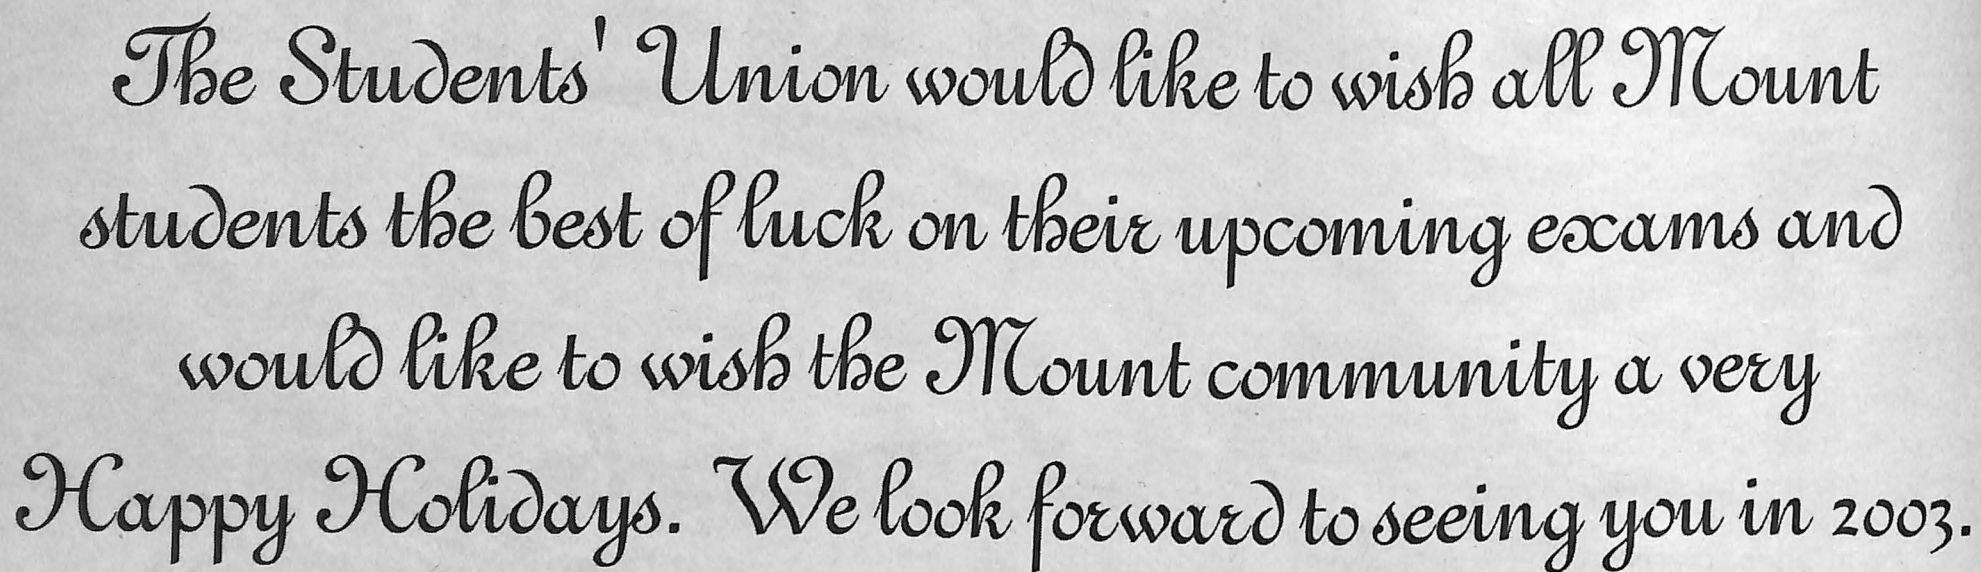 The Students' Union would like to wish all Mount
students the best of luck on their upcoming exams and
would like to wish the Mount community a very
Happy Holidays. We look forward to seeing you in 2003.